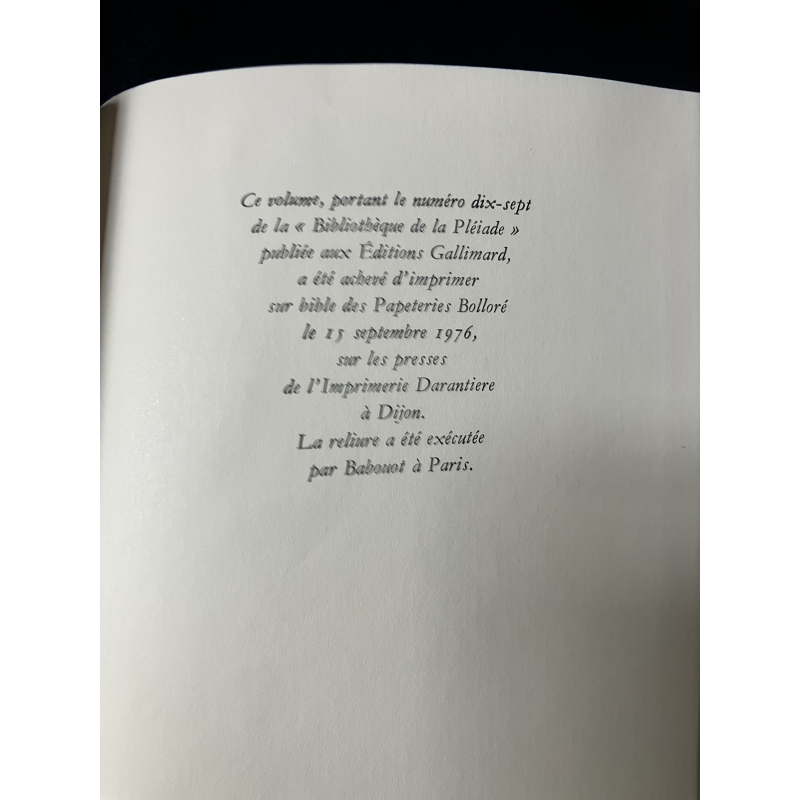 Ce volume, portant le numéro dix-sept
de la « Bibliothèque de la Pléiade »
publiée aux Éditions Gallimard,
a été achevé d'imprimer
sur bible des Papeteries Bolloré
le 15 septembre 1976,
sur les presses
de l'Imprimerie Darantiere
à Dijon.
La reliure a été exécutée
par Babouot à Paris.